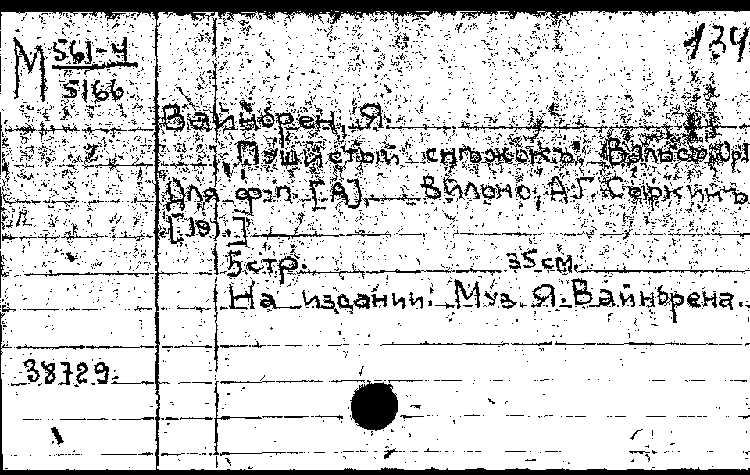 М 561-4
5166
134
Вайнорен, Я.
"Пушистый снѣжокъ". Вальсъ. Ор.1
Для ф-п. [А]. Вильно, А.Г. Сыркинъ
[19..]
5 стр. 35 см.
На издании: Муз. Я. Вайнорена.
38729.